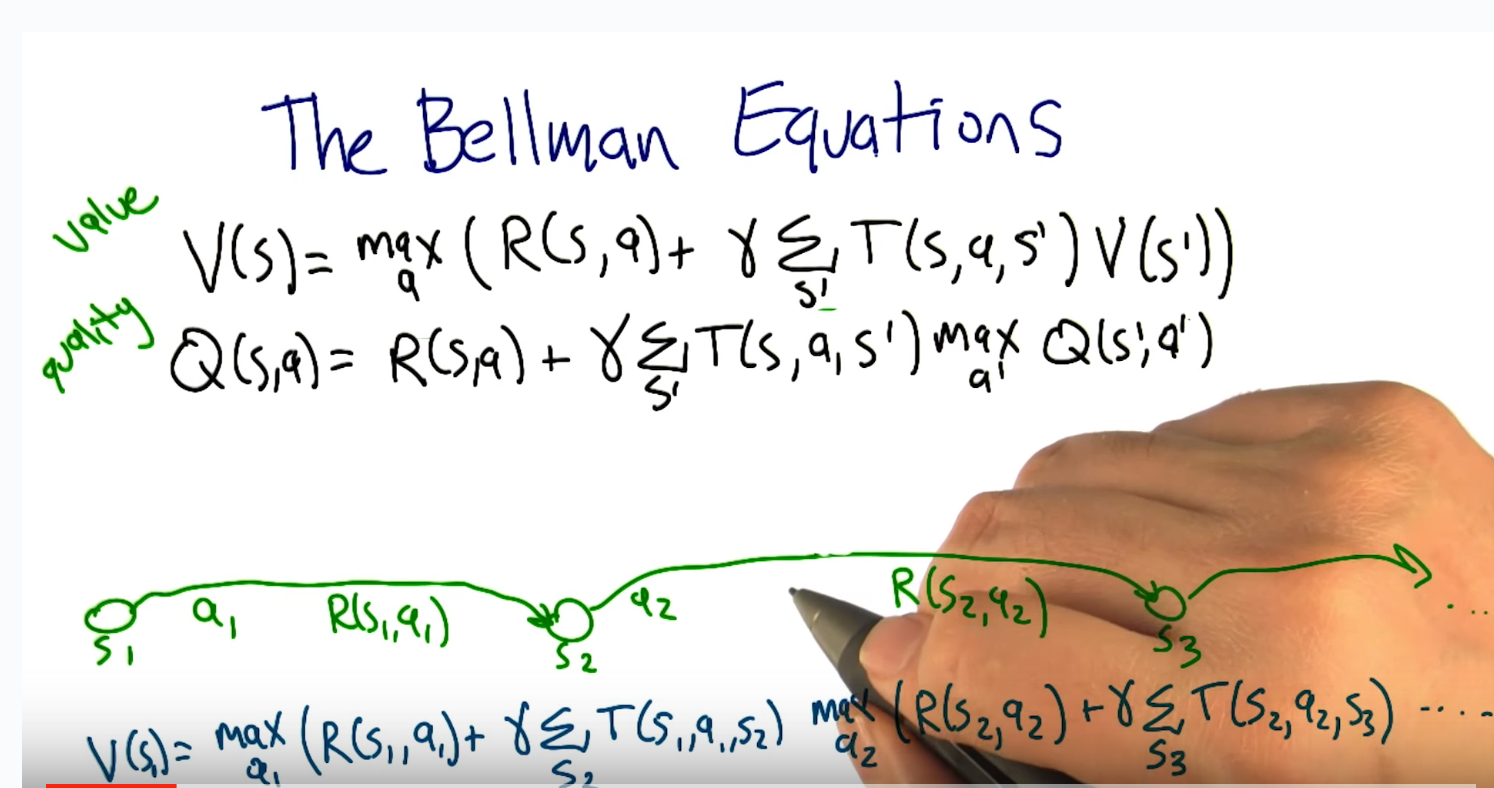 The Bellman Equations
value
V(s)= max a (R(s,a)+ γ Σ s' T(s,a,s')V(s'))
quality
Q(s,a)= R(s,a) + γ Σ s' T(s,a,s') max a' Q(s',a')
a1 R(s1,a1) a2 R(s2,a2) ....
s1 s2 s3
V(s1)= max a1 (R(s1,a1)+ γ Σ s2 T(s1,a1,s2) max a2 (R(s2,a2)+γ Σ s3 T(s2,a2,s3) ....